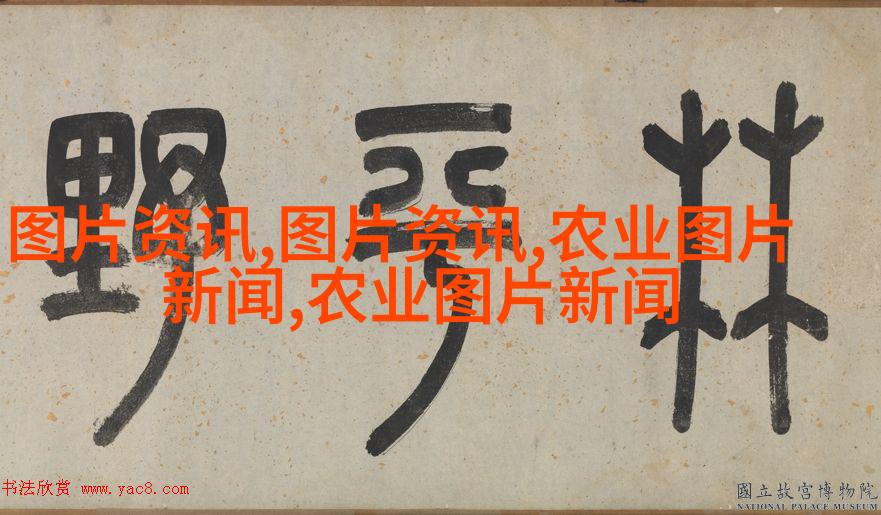 林平野
图片资讯,图片资讯,农业图片
新闻,农业图片新闻
书法欣赏 www.yac8.com
國立故宮博物院
NATIONAL PALACE MUSEUM